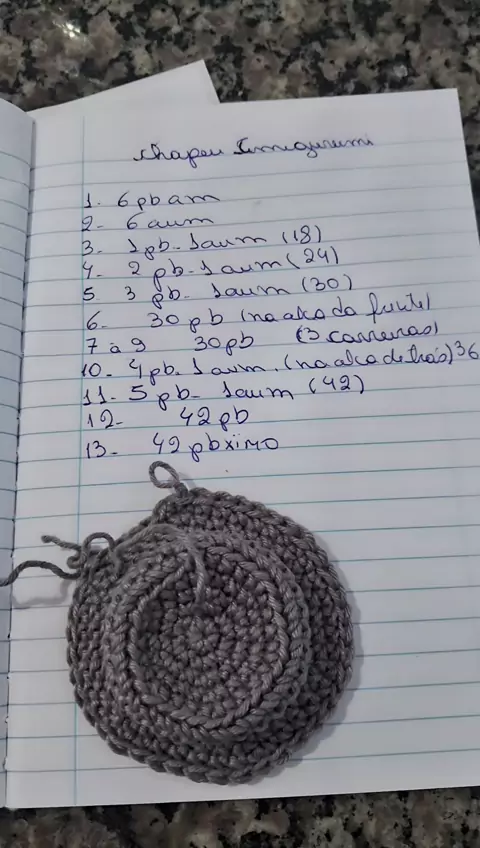 chapeu Imigurumi
1- 6 pb am
2- 6 aum
3- 1 pb - 1 aum (18)
4- 2 pb - 1 aum (24)
5 3 pb - 1 aum (30)
6- 30 pb (na alça da frente)
7 à 9 30 pb (3 carreiras)
10- 4 pb - 1 aum. (na alça de trás) 36
11- 5 pb - 1 aum (42)
12- 42 pb
13- 42 pbximo